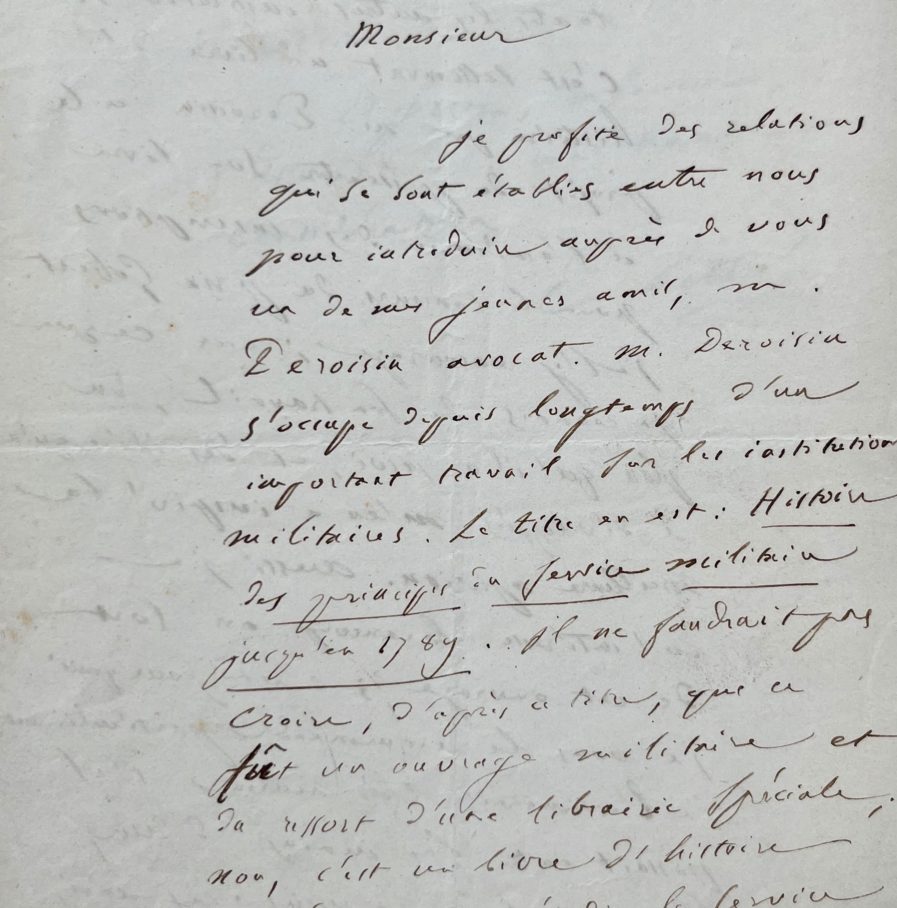 Monsieur
je profite des relations
qui se sont établies entre nous
pour introduire auprès de vous
un de mes jeunes amis, m.
Deroisin avocat. m. Deroisin
s'occupe depuis longtemps d'un
important travail sur les institutions
militaires. Le titre en est : Histoire
des principes du service militaire
jusqu'en 1789. il ne faudrait pas
croire, d'après ce titre, que ce
fût un ouvrage militaire et
du ressort d'une librairie spéciale ;
non, c'est un livre d'histoire
le service